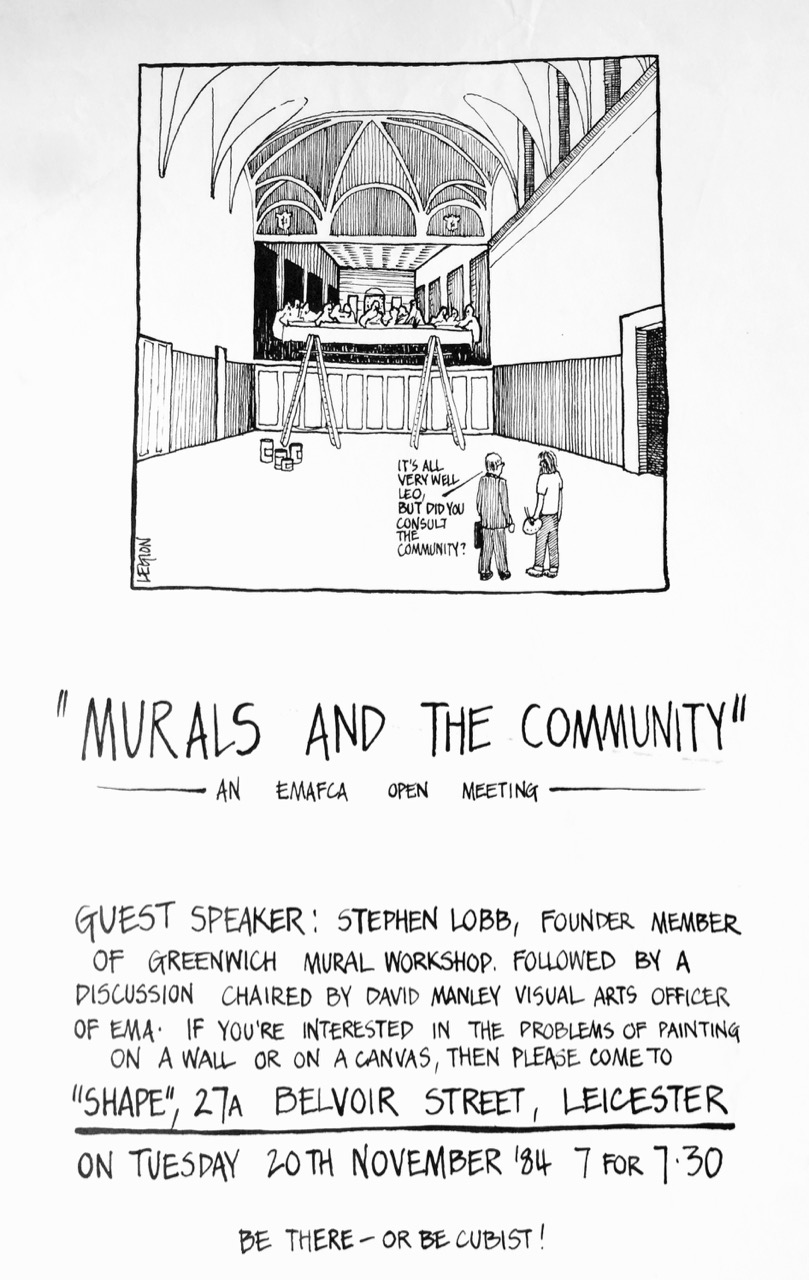 IT'S ALL
VERY WELL
LEO,
BUT DID YOU
CONSULT
THE
COMMUNITY?
"MURALS AND THE COMMUNITY"
AN EMAFCA OPEN MEETING
GUEST SPEAKER: STEPHEN LOBB, FOUNDER MEMBER
OF GREENWICH MURAL WORKSHOP. FOLLOWED BY A
DISCUSSION CHAIRED BY DAVID MANLEY VISUAL ARTS OFFICER
OF EMA. IF YOU'RE INTERESTED IN THE PROBLEMS OF PAINTING
ON A WALL OR ON A CANVAS, THEN PLEASE COME TO
"SHAPE", 27A BELVOIR STREET, LEICESTER
ON TUESDAY 20TH NOVEMBER '84 7 FOR 7.30
BE THERE - OR BE CUBIST!